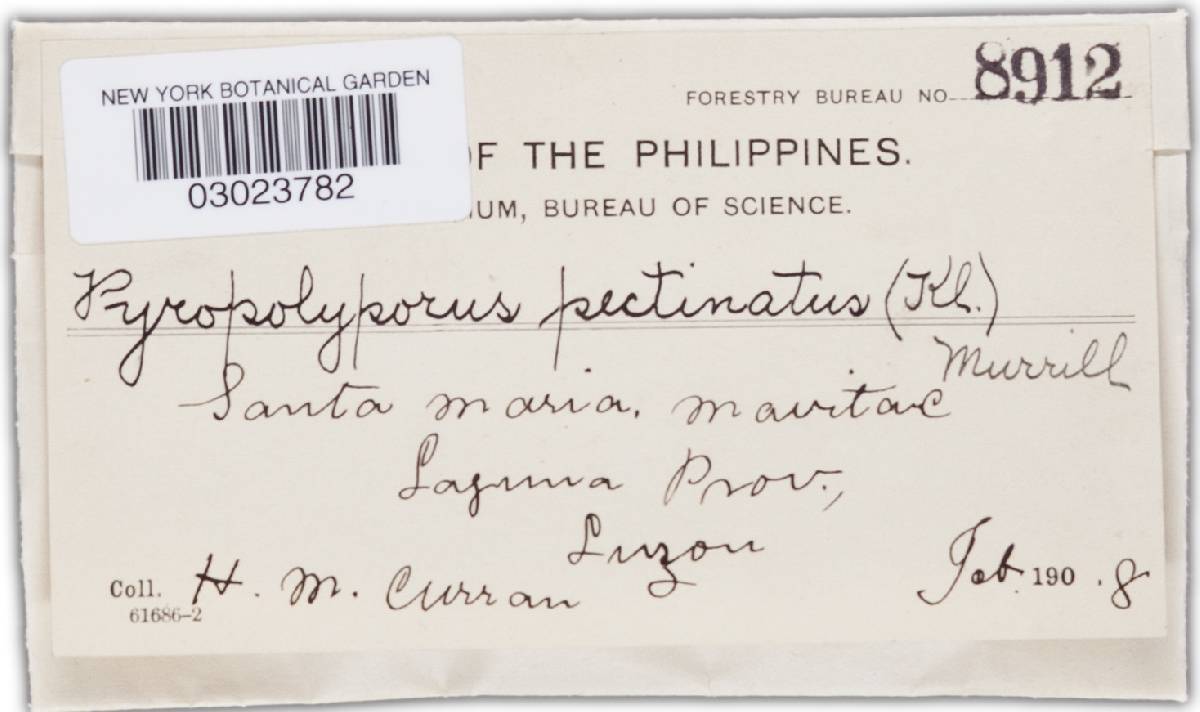 NEW YORK BOTANICAL GARDEN
03023782
FORESTRY BUREAU NO. 8912
OF THE PHILIPPINES.
IUM, BUREAU OF SCIENCE.
Pyropolyporus pectinatus (Kl.)
Murrill
Santa Maria. Mavitac
Laguna Prov.,
Luzon
Coll. H. M. Curran
Feb. 190.8
61686–2